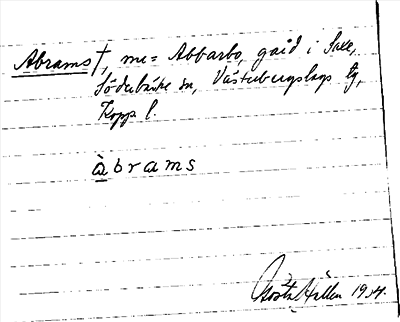 Abrams †, me = Abbarbo, gård i Saxe,
Söderbärke sn, Västerbergslags tg,
Kopp l.
àbrams
Gösta Hällen 1934.